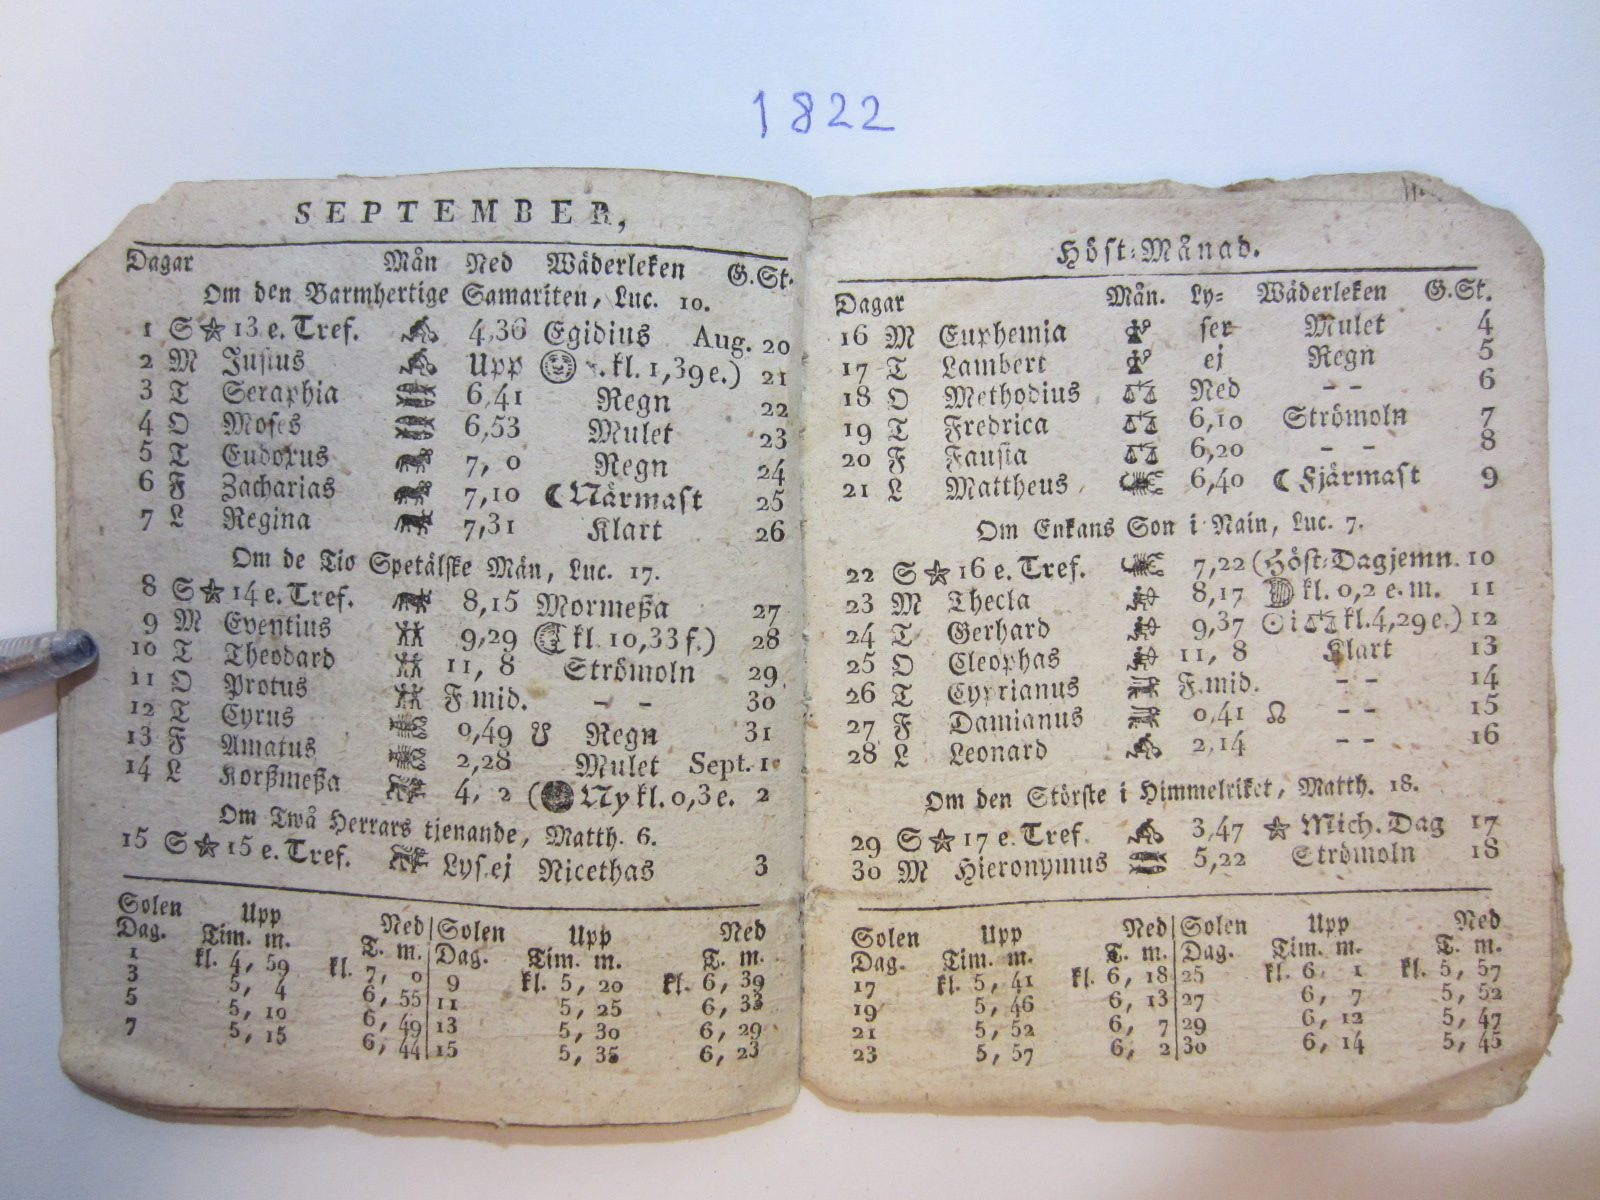 1822
SEPTEMBER,
Dagar Mån Ned Wäderleken G.St.
Om den Barmhertige Samariten, Luc. 10.
1 S 13 e. Tref. 4,36 Egidius Aug. 20
2 M Justus Upp kl. 1,39 e.) 21
3 T Seraphia 6,41 Regn 22
4 O Moses 6,53 Mulet 23
5 T Eudoxus 7, 0 Regn 24
6 F Zacharias 7,10 ☾ Närmast 25
7 L Regina 7,31 Klart 26
Om de Tio Spetälske Män, Luc. 17.
8 S 14 e. Tref. 8,15 Mormeßa 27
9 M Eventius 9,29 kl. 10,33 f.) 28
10 T Theodard 11, 8 Strömoln 29
11 O Protus F.mid. – – 30
12 T Cyrus 0,49 ☋ Regn 31
13 F Amatus 2,28 Mulet Sept. 1
14 L Korßmeßa 4, 2 ( Ny kl. 0,3 e. 2
Om Twå Herrars tjenande, Matth. 6.
15 S 15 e. Tref. Lys.ej Nicethas 3
Solen Upp Ned Solen Upp Ned
Dag. Tim. m. T. m. Dag. Tim. m. T. m.
1 kl. 4, 59 kl. 7, 0 9 kl. 5, 20 kl. 6, 39
3 5, 4 6, 55 11 5, 25 6, 33
5 5, 10 6, 49 13 5, 30 6, 29
7 5, 15 6, 44 15 5, 35 6, 23
Höst-Månad.
Dagar Mån. Ly- Wäderleken G.St.
16 M Euphemia ser Mulet 4
17 T Lambert ej Regn 5
18 O Methodius Ned – – 6
19 T Fredrica 6,10 Strömoln 7
20 F Fausta 6,20 – – 8
21 L Mattheus 6,40 ☾ Fjärmast 9
Om Enkans Son i Nain, Luc. 7.
22 S 16 e. Tref. 7,22 (Höst-Dagjemn. 10
23 M Thecla 8,17 kl. 0,2 e.m. 11
24 T Gerhard 9,37 ☉ i ♎ kl. 4,29 e.) 12
25 O Cleophas 11, 8 Klart 13
26 T Cyprianus F.mid. – – 14
27 F Damianus 0,41 ☊ – – 15
28 L Leonard 2,14 – – 16
Om den Störste i Himmelriket, Matth. 18.
29 S 17 e. Tref. 3,47 Mich. Dag 17
30 M Hieronymus 5,22 Strömoln 18
Solen Upp Ned Solen Upp Ned
Dag. Tim. m. T. m. Dag. Tim. m. T. m.
17 kl. 5, 41 kl. 6, 18 25 kl. 6, 1 kl. 5, 57
19 5, 46 6, 13 27 6, 7 5, 52
21 5, 52 6, 7 29 6, 12 5, 47
23 5, 57 6, 2 30 6, 14 5, 45